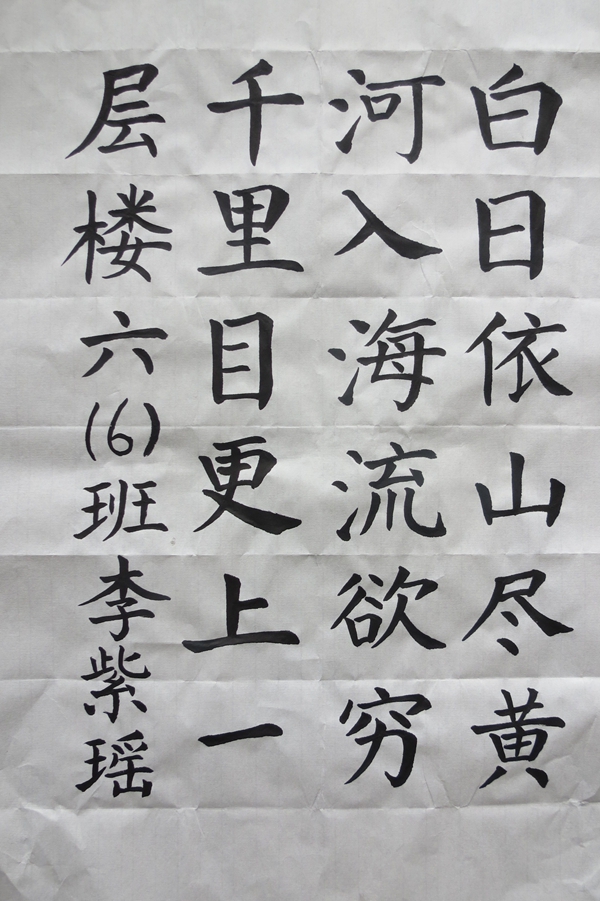 白日依山尽黄
河入海流欲穷
千里目更上一
层楼六(6)班李紫瑶